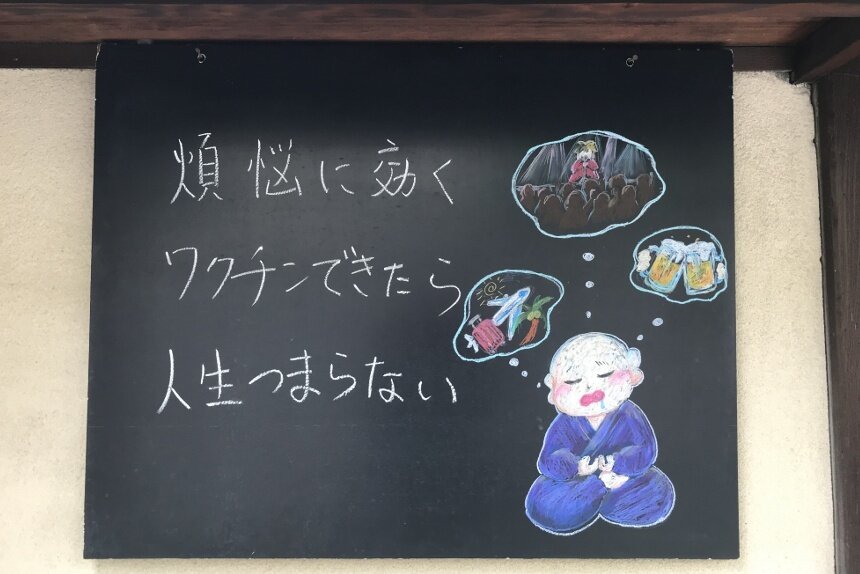 煩悩に効く
ワクチンできたら
人生つまらない